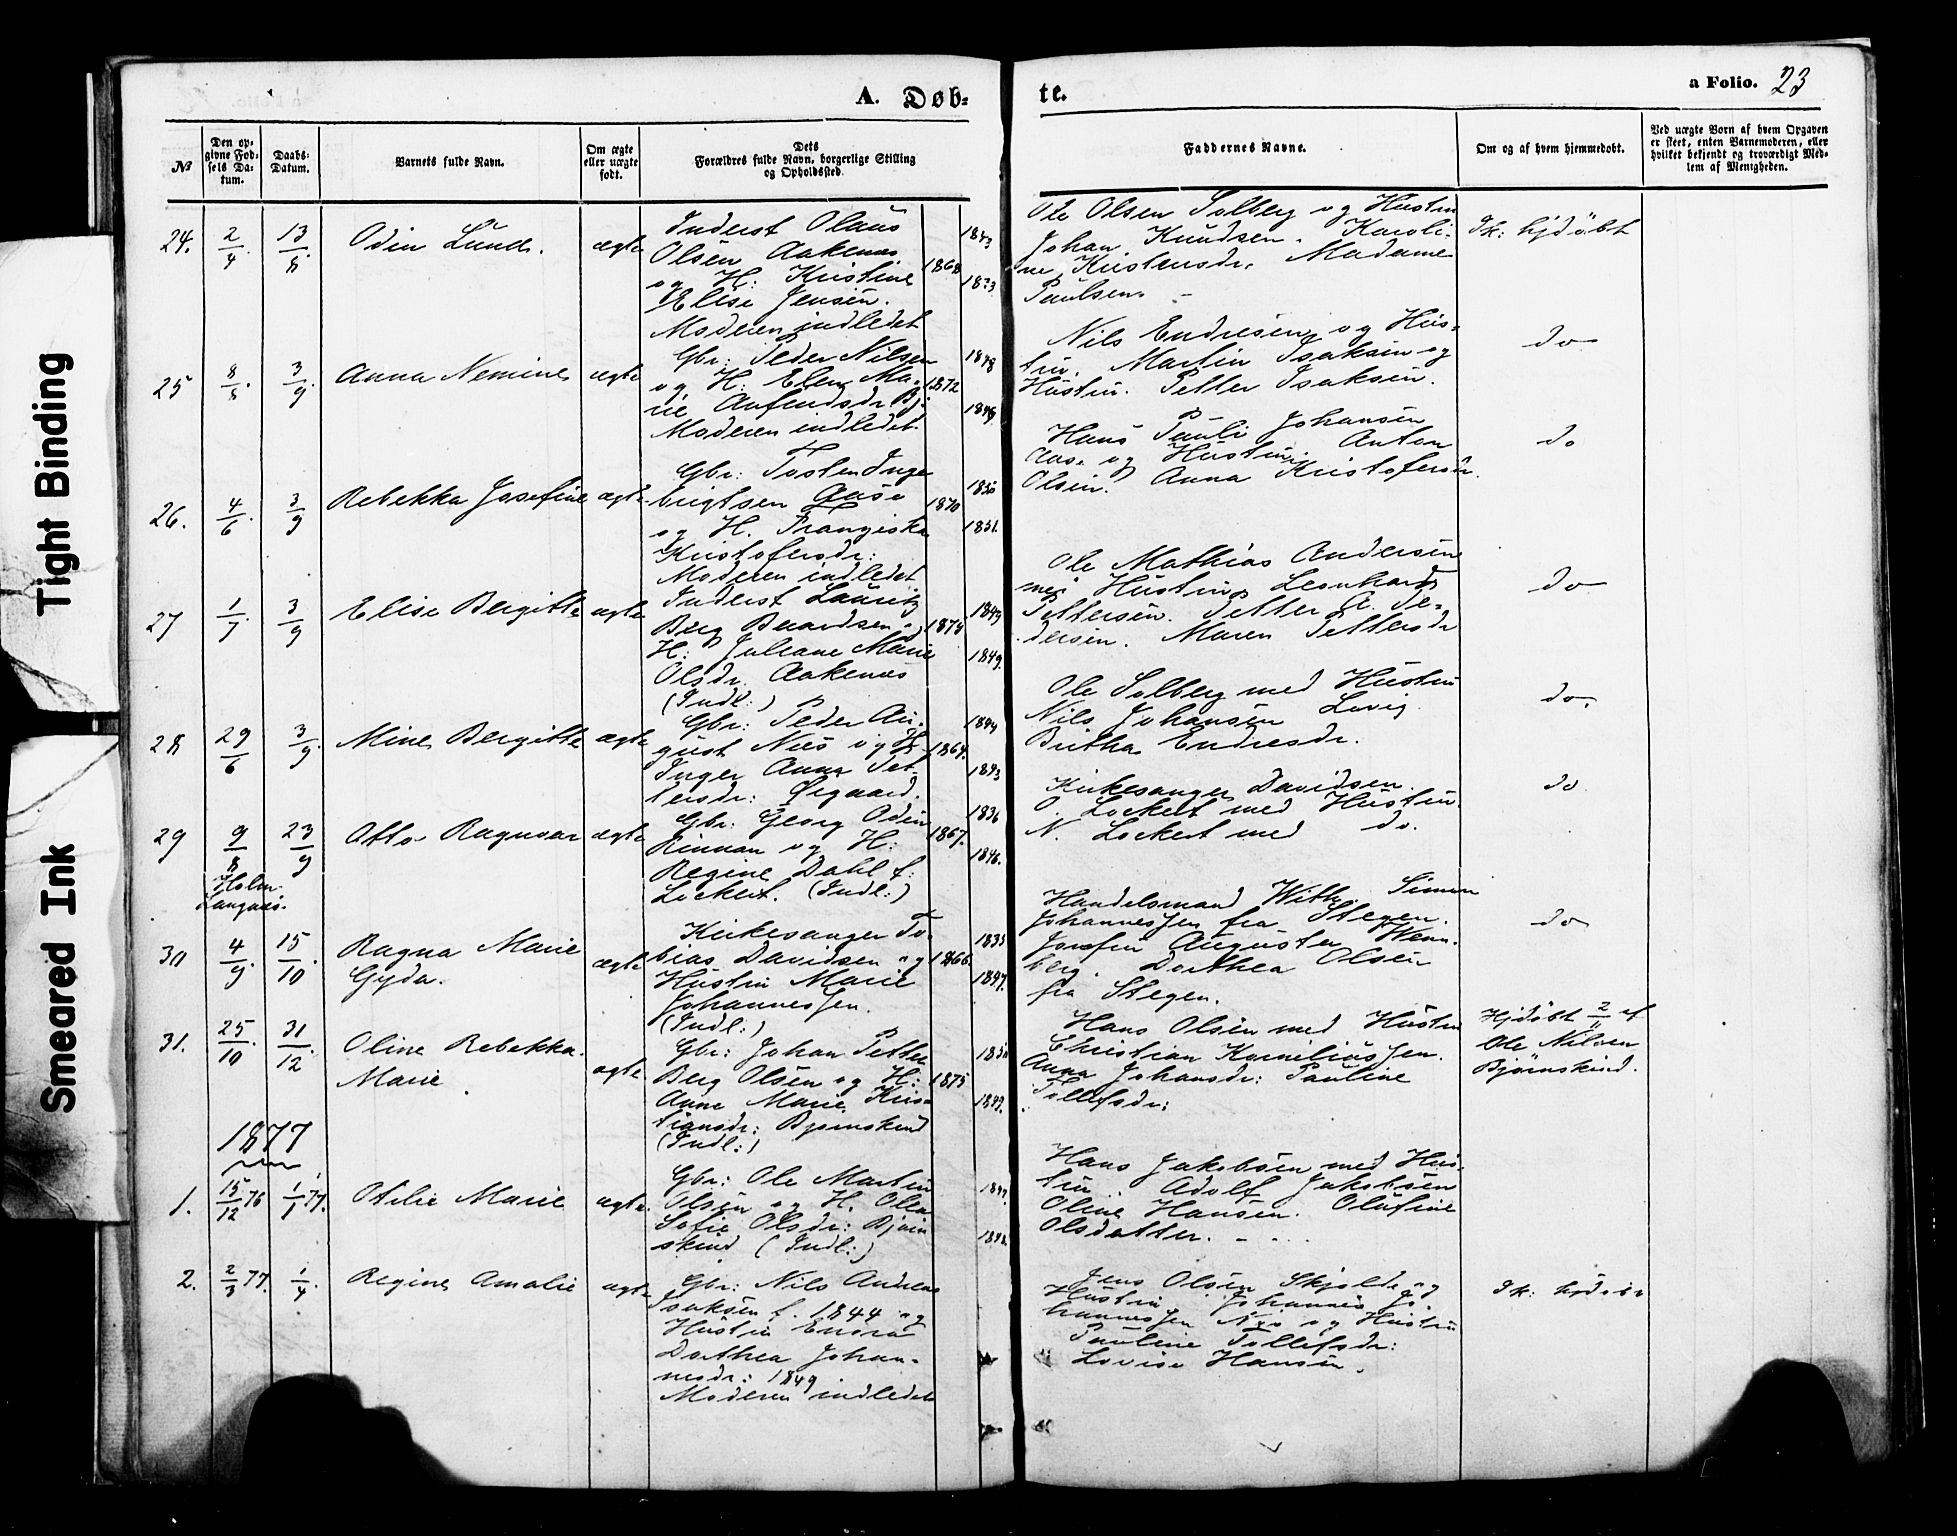 A. Døb=
te.
a Folio. 23
Tight Binding
Smeared Ink
№
Den op=
givne Fød=
sels Da=
tum.
Daabs=
Datum.
Barnets fulde Navn.
Om ægte
eller uægte
født.
Dets
Forældres fulde Navn, borgerlige Stilling
og Opholdssted.
Faddernes Navne.
Om og af hvem hjemmedøbt.
Ved uægte Børn af hvem Opgaven
er skeet, enten Barnemoderen, eller
hvilket bekjendt og troværdigt Med=
lem af Menigheden.
24. 2/4 13/8 Odin Lund. ægte
Inderst Olaus
Olsen Aakenæs
og H: Kristine
Elise Jensen.
Moderen indledet
1868
1843
Ole Olsen Solberg og Hustru
Johan Knudsen. Karoli-
ne Kristensdr. Madame
Paulsen.
Ik: hjdöbt
25 8/8 3/9 Anna Nemine ægte
Gbr: Peder Nilsen
og H: Elen Ma-
rie Bj.
Moderen indledet
1872
1848
Nils Endresen og Hus-
tru. Martin Isaksen og
Hustru. Petter Isaksen.
do
26. 4/6 3/9 Rebekka Josefine ægte
Gbr: Tosten Inge
brigtsen Aase
og H. Frangiska
Kristofersdr:
Moderen indledet
1870
1850
1851.
Hans Pauli Johansen
Aas. og Hustru. Anton
Olsen. Anna Kristofersdr.
do
27 1/7 3/9 Elise Bergitte ægte
Inderst Lauritz
Berg Berntsen og
H: Juliane Marie
Olsdr. Aakenæs
(Indl:)
1849
1849.
Ole Mathias Andersen
Hustru. Leonhard
Pettersen. Petter A. Pe-
dersen. Maren Pettersdr
do
28 29/6 3/9. Mine Bergitte ægte
Gbr: Peder Au-
gust Niis og H.
Inger Anna Pet-
tersdr: Øigaard.
1864.
1844
1843
Ole Solberg med Hustru
Nils Johansen Lovig.
Britha Endresdr.
do.
29 9/8 23/9 Otto Ragnvar ægte
Holm
Langnæs.
Gbr: Georg Odin
Rinnan og H:
Regine Dahl f:
Lockert. (Indl:)
1867.
1836
1846.
Kirkesanger Davidsen.
O. Lockert med Hustru.
N. Lockert med do.
do
30 4/9. 15/10 Ragna Marie
Gyda. ægte
Kirkesanger To-
bias Davidsen og
Hustru Marie
Johannessen.
(Indl:)
1866.
1835
1847.
Handelsmand With. Simon
Johannessen fra Stegen.
Josefin Augusta Wenn-
berg. Dorthea Olsen
fra Stegen.
do
31. 25/10. 31/12. Oline Rebekka
Marie ægte
Gbr: Johan Petter
Berg Olsen og H:
Anne Marie Kris-
tiansdr: Bjørnskind
(Indl:)
1875
1850
1849.
Hans Olsen med Hustru
Christian Korneliussen.
Anna Johansdr: Pauline
Tollefsdr:
Hjdöbt 2/11 af
Ole Nilsen
Bjørnskind.
1877
1. 15/12 76 1/1 77. Otilie Marie ægte
Gbr: Ole Martin
Olsen og H. Olea
Sofie Olsdr: Bjørn
skind (Indl:)
Hans Jakobsen med Hus-
tru. Adolf Jakobsen
Oline Hansen. Olufine
Olsdatter.
2. 2/3 77. 1/4. Regine Amalie ægte
Gbr: Nils Andreas
Isaksen f. 1844 og
Hustru
Dorthea Johan-
nesdr: 1849
Moderen indledet
Jens Olsen Skjolde og
Hustru Johannes Jo-
hannessen Næs og Hustru
Pauline Tollefsdr:
Lovise Hansen.
Ik: hjdöbt